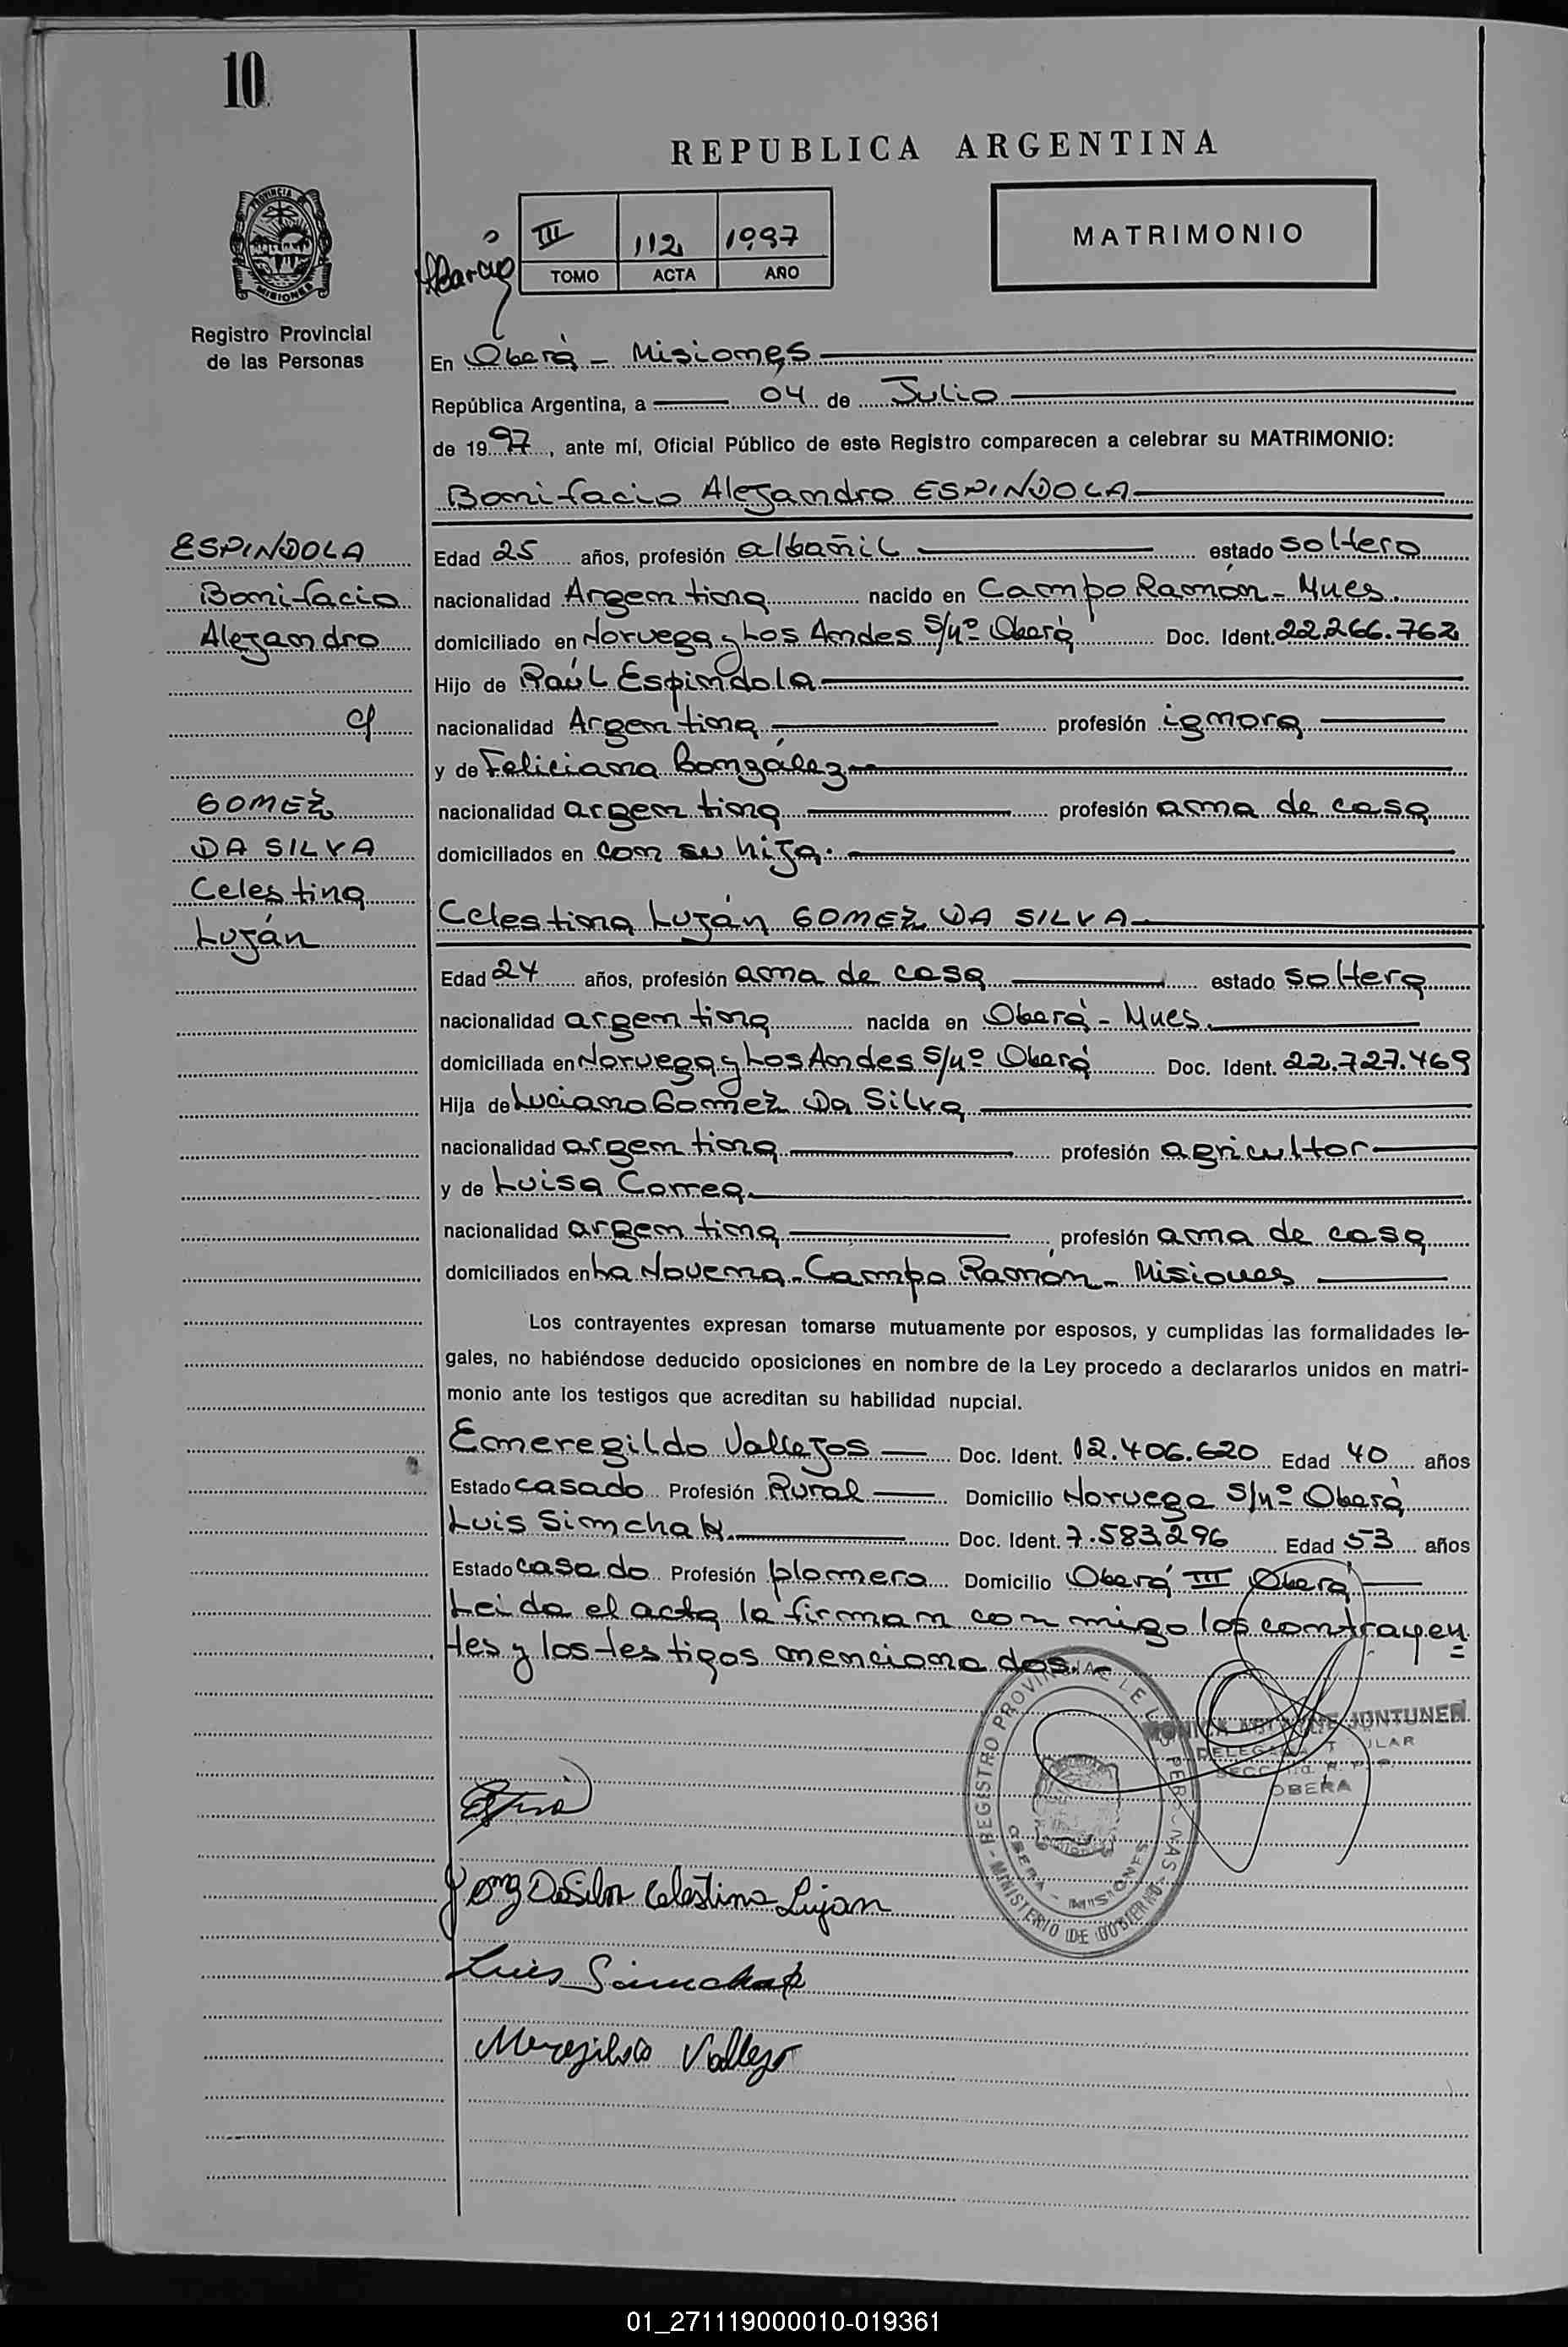 10
REPUBLICA ARGENTINA
PROVINCIA DE
MISIONES
Registro Provincial
de las Personas
III 112 1997
TOMO ACTA AÑO
MATRIMONIO
En Oberá - Misiones
República Argentina, a 04 de Julio
de 1997, ante mí, Oficial Público de este Registro comparecen a celebrar su MATRIMONIO:
Bonifacio Alejandro ESPINDOLA
ESPINDOLA
Bonifacio
Alejandro
c/
GOMEZ
DA SILVA
Celestina
Luján
Edad 25 años, profesión albañil estado soltero
nacionalidad Argentina nacido en Campo Ramón - Mnes.
domiciliado en Noruega y Los Andes S/Nº Oberá Doc. Ident. 22.266.762
Hijo de Raúl Espindola
nacionalidad Argentina profesión ignora
y de Feliciana Gonzáles
nacionalidad argentina profesión ama de casa
domiciliados en con su hija.
Celestina Luján GOMEZ DA SILVA
Edad 24 años, profesión ama de casa estado soltera
nacionalidad argentina nacida en Oberá - Mnes.
domiciliada en Noruega y Los Andes S/Nº Oberá Doc. Ident. 22.727.469
Hija de Luciano Gomez Da Silva
nacionalidad argentina profesión agricultor
y de Luisa Correa
nacionalidad argentina profesión ama de casa
domiciliados en La Novena - Campo Ramón - Misiones
Los contrayentes expresan tomarse mutuamente por esposos, y cumplidas las formalidades le-
gales, no habiéndose deducido oposiciones en nombre de la Ley procedo a declararlos unidos en matri-
monio ante los testigos que acreditan su habilidad nupcial.
Emeregildo Vallejos Doc. Ident. 12.406.620 Edad 40 años
Estado casado Profesión Rural Domicilio Noruega S/Nº Oberá
Luis Simchak Doc. Ident. 7.583.296 Edad 53 años
Estado casado Profesión plomero Domicilio Oberá III Oberá
Leida el acta la firman conmigo los contrayen
tes y los testigos mencionados.-
REGISTRO PROVINCIAL DE LAS PERSONAS
MINISTERIO DE GOBIERNO
OBERA - MISIONES
MONICA JUNTUNEN
DELEGADA TITULAR
OBERA
Gomez DaSilva Celestina Lujan
Luis Simchak
Meregildo Vallejo
01_271119000010-019361